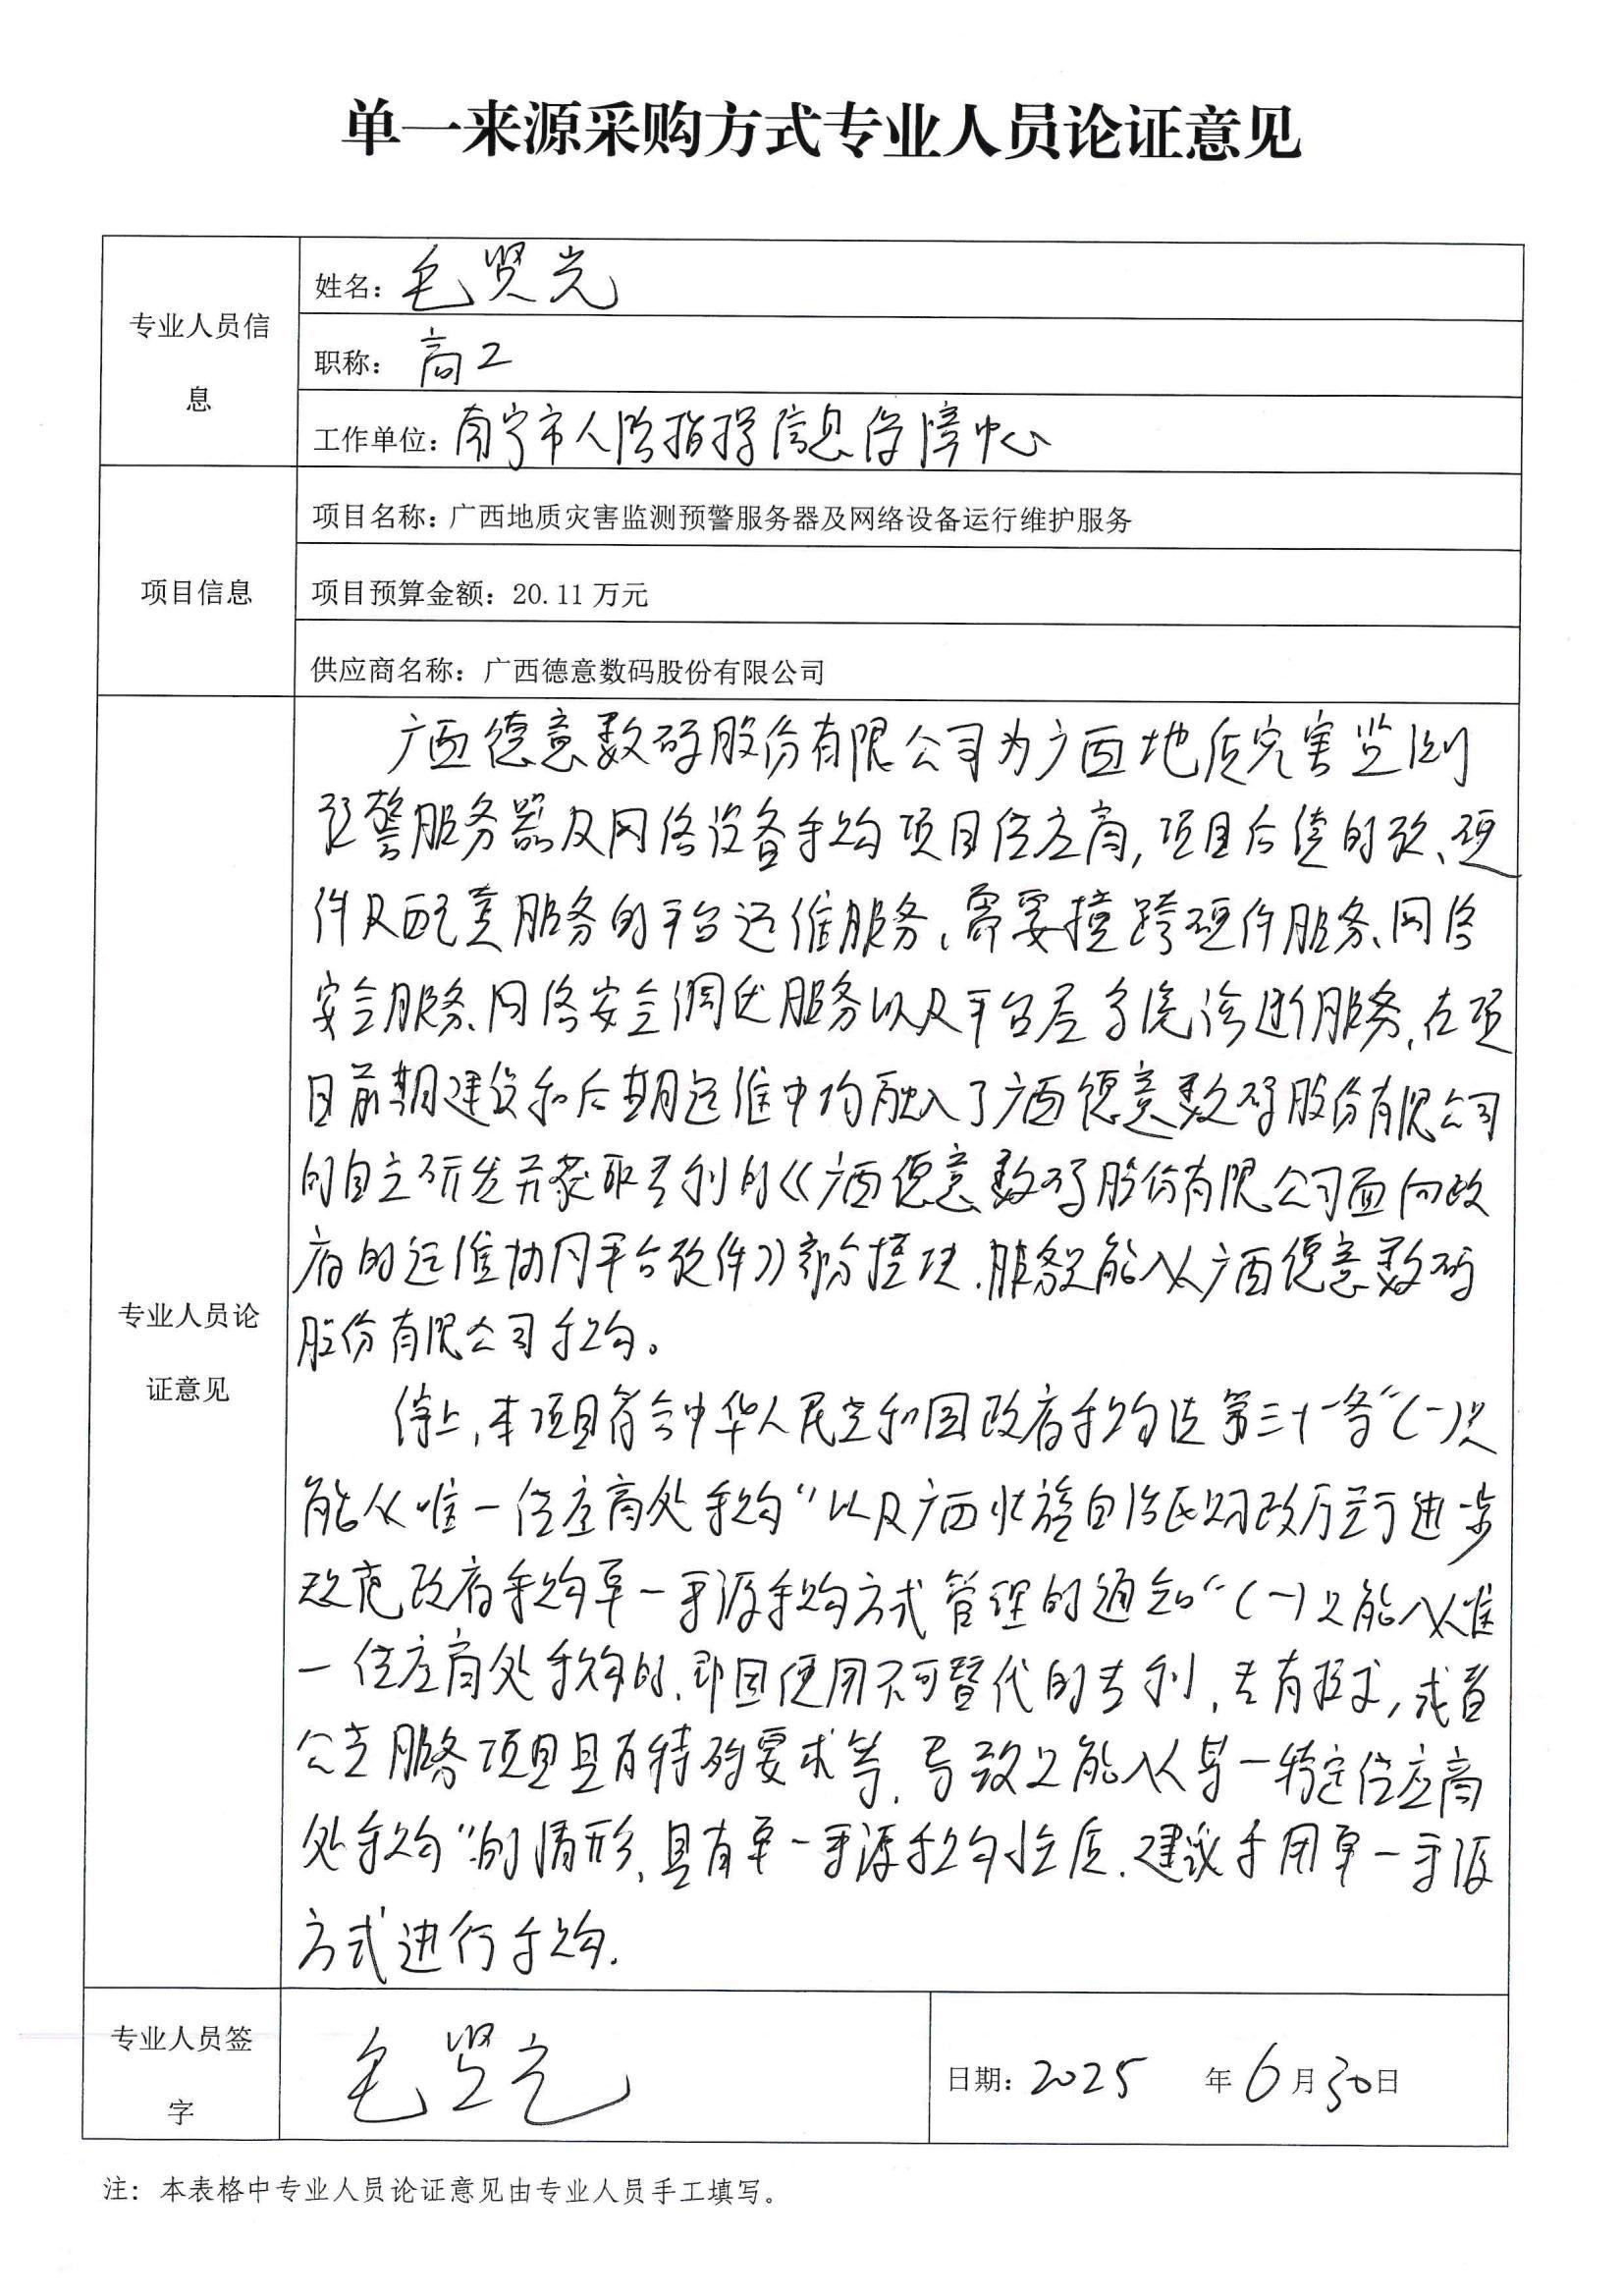 单一来源采购方式专业人员论证意见
专业人员信息
姓名：毛贤光
职称：高工
工作单位：南宁市人防指挥信息保障中心
项目信息
项目名称：广西地质灾害监测预警服务器及网络设备运行维护服务
项目预算金额：20.11万元
供应商名称：广西德意数码股份有限公司
专业人员论证意见
广西德意数码股份有限公司为广西地质灾害监测
预警服务器及网络设备采购项目供应商，项目后续的软、硬
件及配套服务的平台运维服务，需要横跨硬件服务、网络
安全服务、网络安全调优服务以及平台层系统诊断服务，在项
目前期建设和后期运维中均融入了广西德意数码股份有限公司
的自主研发并获取专利的《广西德意数码股份有限公司面向政
府的运维协同平台软件》部分模块，服务只能从广西德意数码
股份有限公司采购。
综上，本项目符合中华人民共和国政府采购法第三十一条“（一）只
能从唯一供应商处采购”以及广西壮族自治区财政厅关于进一步
规范政府采购单一来源采购方式管理的通知“（一）只能从唯
一供应商处采购的，即因使用不可替代的专利，专有技术，或者
公共服务项目具有特殊要求等，导致只能从某一特定供应商
处采购”的情形，具有单一来源采购性质，建议采用单一来源
方式进行采购.
专业人员签字
毛贤光
日期：2025年6月30日
注：本表格中专业人员论证意见由专业人员手工填写。